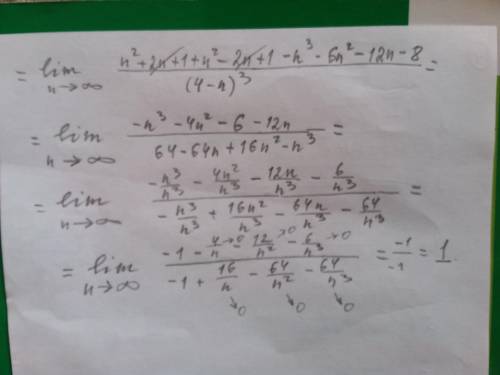 = lim n→∞ (n² + 2n + 1 + n² - 2n + 1 - n³ - 6n² - 12n - 8) / (4 - n)³ =
= lim n→∞ (-n³ - 4n² - 6 - 12n) / (64 - 64n + 16n² - n³) =
= lim n→∞ (-n³/n³ - 4n²/n³ - 12n/n³ - 6/n³) / (-n³/n³ + 16n²/n³ - 64n/n³ - 64/n³) =
= lim n→∞ (-1 - 4/n →0 - 12/n² →0 - 6/n³ →0) / (-1 + 16/n - 64/n² - 64/n³) = -1/-1 = 1.
↘0 ↘0 ↘0